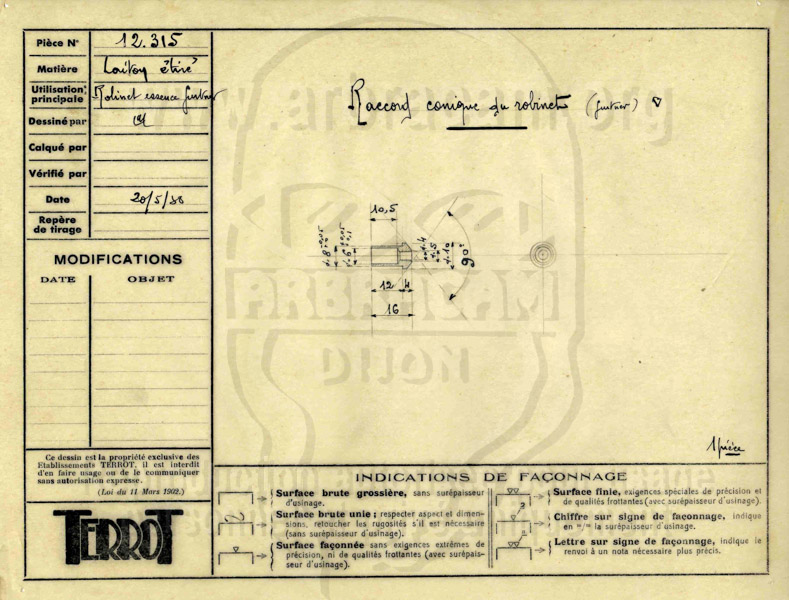 Pièce N° 12.315
Matière Laiton étiré
Utilisation principale Robinet essence Gurtner
Dessiné par
Calqué par
Vérifié par
Date 20/5/38
Repère de tirage
MODIFICATIONS
DATE OBJET
Ce dessin est la propriété exclusive des
Etablissements TERROT, il est interdit
d'en faire usage ou de le communiquer
sans autorisation expresse.
(Loi du 11 Mars 1902.)
TERROT
Raccord conique du robinet (Gurtner)
10,5
90°
12 4
16
1 pièce
www.arbracam.org
ARBRACAM
DIJON
INDICATIONS DE FAÇONNAGE
Surface brute grossière, sans surépaisseur
d'usinage.
Surface brute unie ; respecter aspect et dimen-
sions, retoucher les rugosités s'il est nécessaire
(sans surépaisseur d'usinage).
Surface façonnée sans exigences extrêmes de
précision, ni de qualités frottantes (avec surépais-
seur d'usinage).
Surface finie, exigences spéciales de précision et
de qualités frottantes (avec surépaisseur d'usinage).
3
Chiffre sur signe de façonnage, indique
en m/m la surépaisseur d'usinage.
Lettre sur signe de façonnage, indique le
renvoi à un nota nécessaire plus précis.